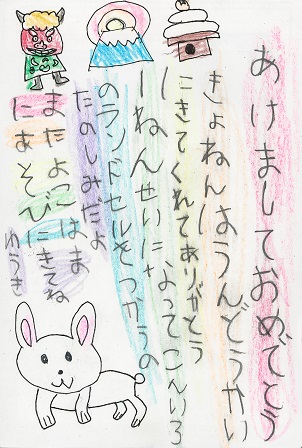 あけましておめでとう
きょねんはうんどうかい
にきてくれてありがとう
1ねんせいになってこんいろ
のランドセルをつかうの
たのしみだよ
またよこはま
にあそびにきてね
ゆうき